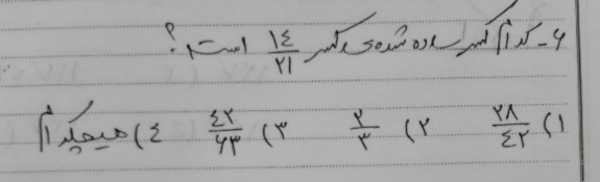 ۶- کدام کسر ساده شده‌ی کسر ۱۴/۲۱ است؟
۱) ۲۸/۴۲ ۲) ۲/۳ ۳) ۴۲/۶۳ ۴) هیچکدام